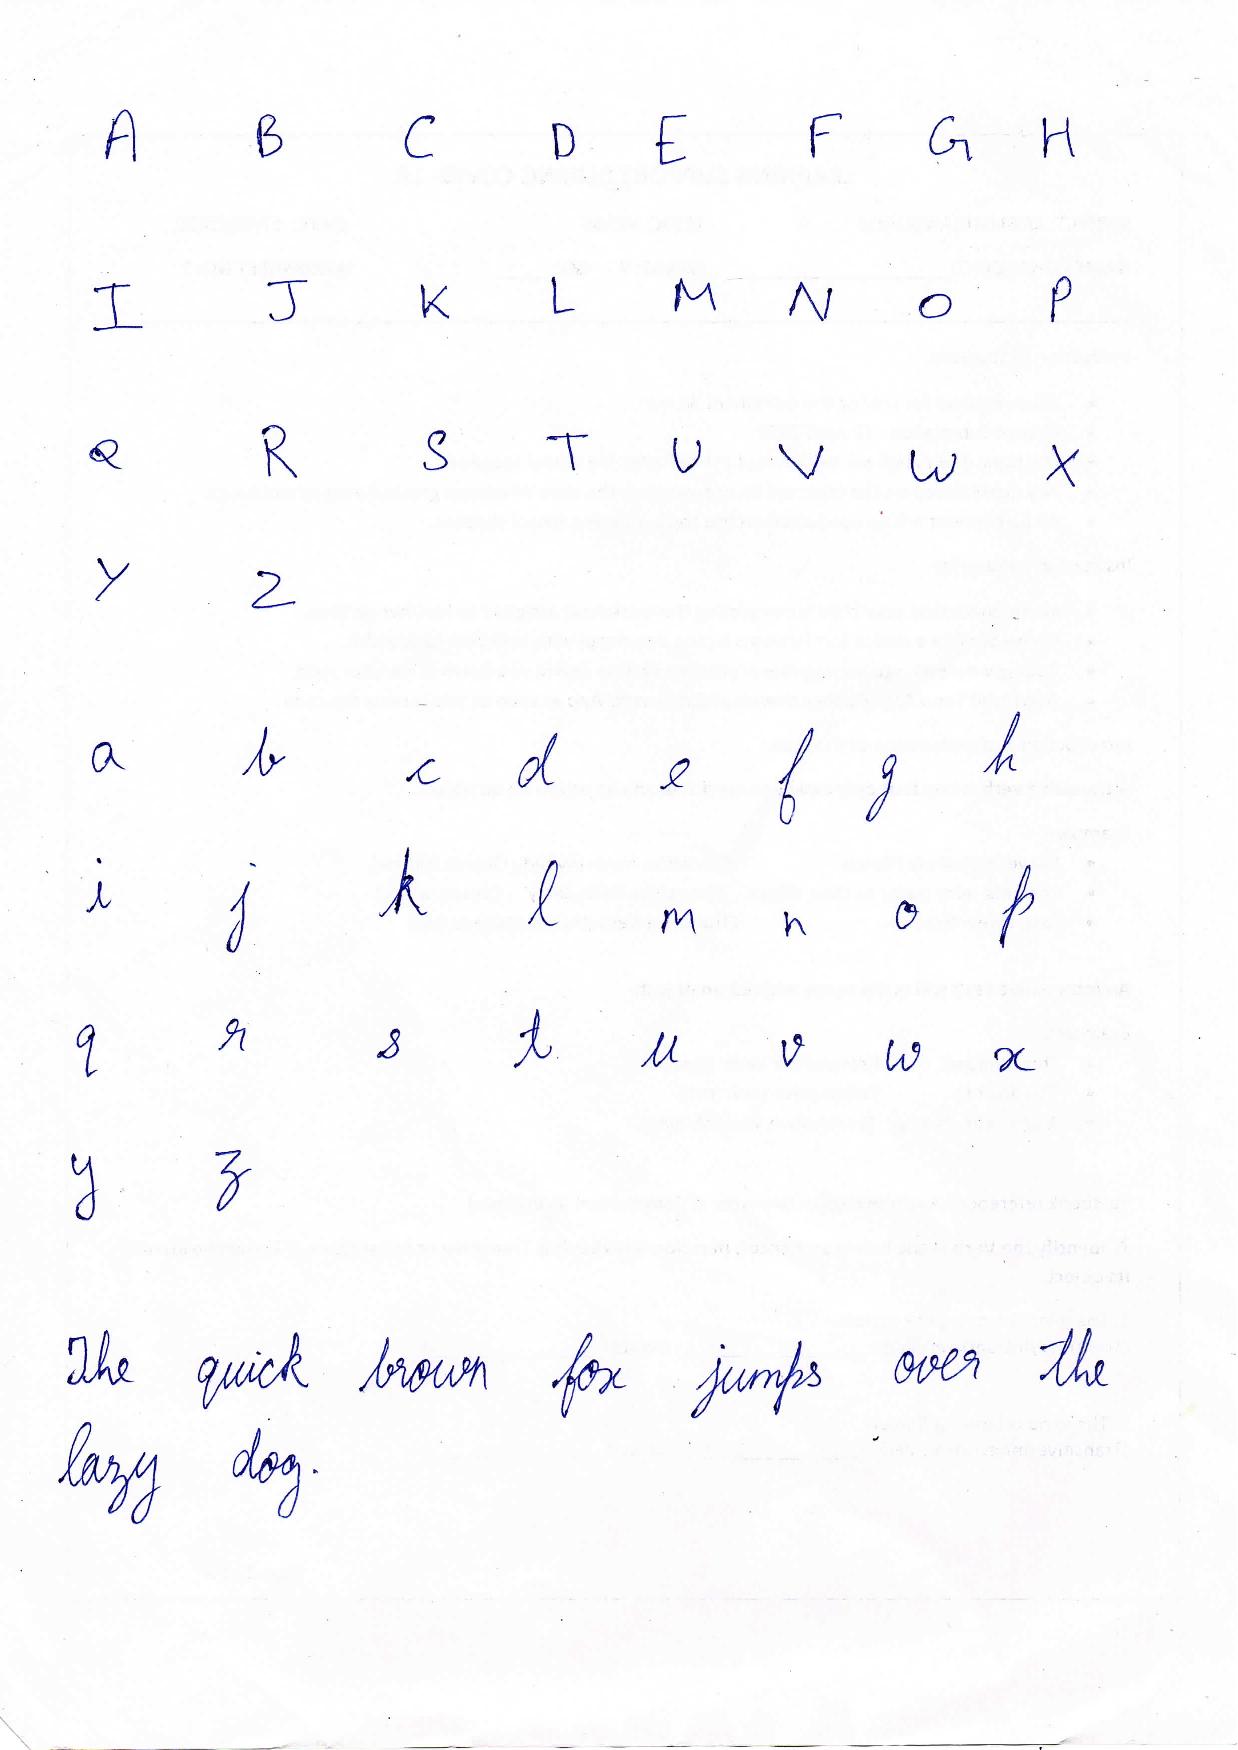 A B C D E F G H
I J K L M N O P
Q R S T U V W X
Y Z
a b c d e f g h
i j k l m n o p
q r s t u v w x
y z
The quick brown fox jumps over the
lazy dog.